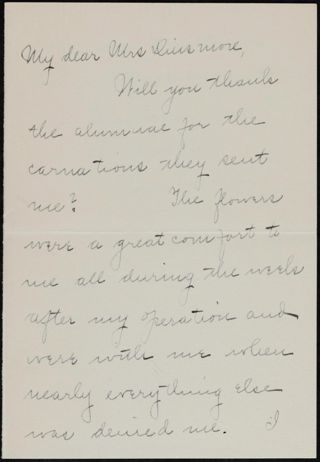 My dear Mrs Dinsmore,
Will you thank
the alumnae for the
carnations they sent
me? The flowers
were a great comfort to
me all during the week
after my operation and
were with me when
nearly everything else
was denied me. I